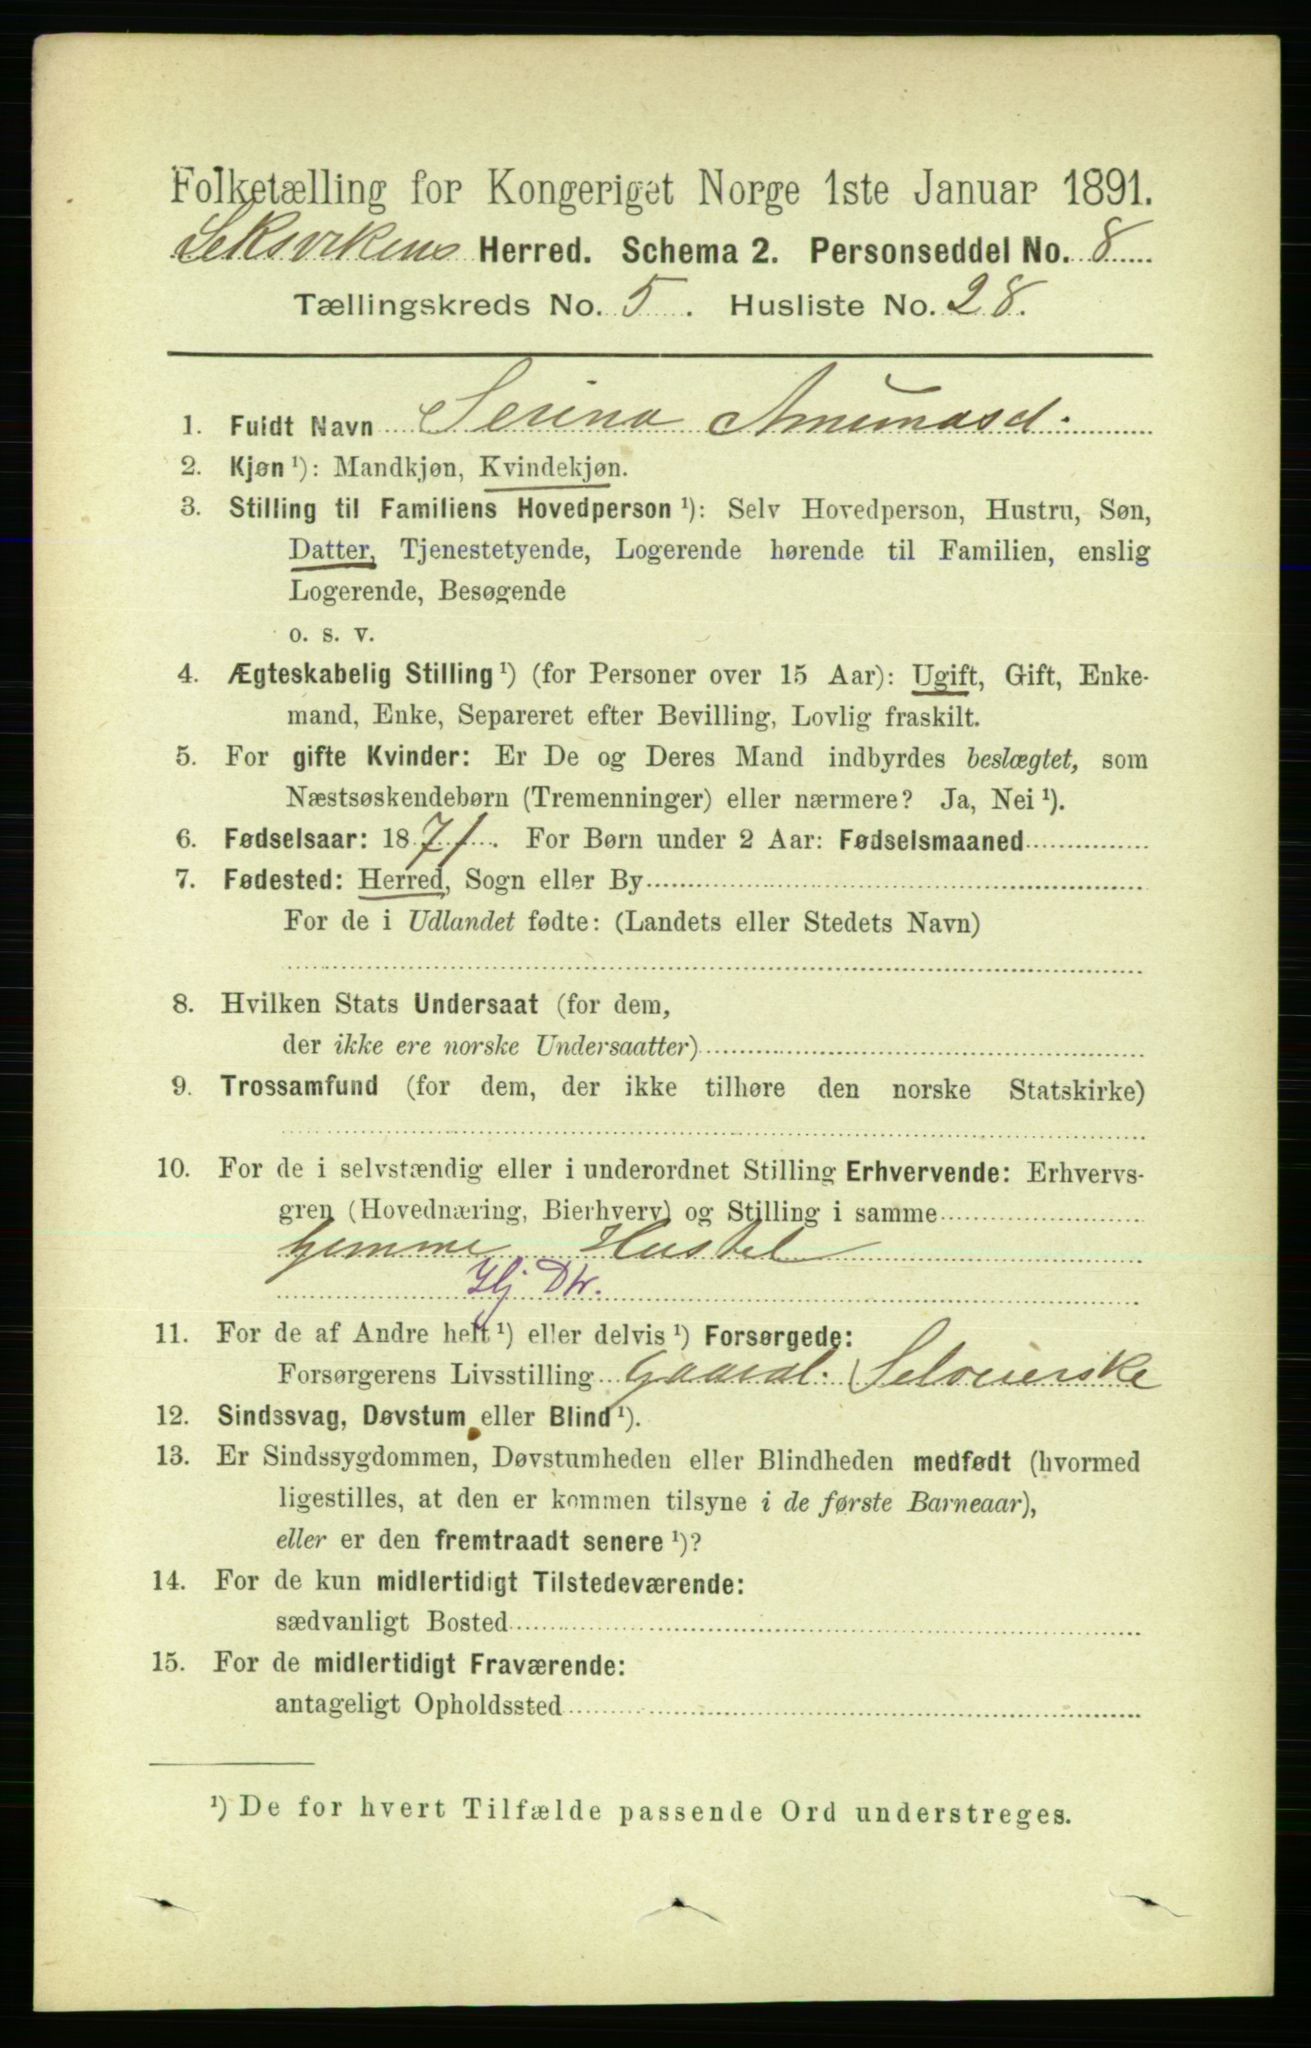 Folketælling for Kongeriget Norge 1ste Januar 1891.
Leksvikens Herred. Schema 2. Personseddel No. 8
Tællingskreds No. 5. Husliste No. 28.
1. Fuldt Navn Serina Amundsd.
2. Kjøn ¹): Mandkjøn, Kvindekjøn.
3. Stilling til Familiens Hovedperson ¹): Selv Hovedperson, Hustru, Søn,
Datter, Tjenestetyende, Logerende hørende til Familien, enslig
Logerende, Besøgende
o. s. v.
4. Ægteskabelig Stilling ¹) (for Personer over 15 Aar): Ugift, Gift, Enke-
mand, Enke, Separeret efter Bevilling, Lovlig fraskilt.
5. For gifte Kvinder: Er De og Deres Mand indbyrdes beslægtet, som
Næstsøskendebørn (Tremenninger) eller nærmere? Ja, Nei ¹).
6. Fødselsaar: 1871. For Børn under 2 Aar: Fødselsmaaned
7. Fødested: Herred, Sogn eller By
For de i Udlandet fødte: (Landets eller Stedets Navn)
8. Hvilken Stats Undersaat (for dem,
der ikke ere norske Undersaatter)
9. Trossamfund (for dem, der ikke tilhøre den norske Statskirke)
10. For de i selvstændig eller i underordnet Stilling Erhvervende: Erhvervs-
gren (Hovednæring, Bierhverv) og Stilling i samme
hjemme Husstel
Hj. Dtr.
11. For de af Andre helt ¹) eller delvis ¹) Forsørgede:
Forsørgerens Livsstilling Gaard. Selveierske
12. Sindssvag, Døvstum eller Blind ¹).
13. Er Sindssygdommen, Døvstumheden eller Blindheden medfødt (hvormed
ligestilles, at den er kommen tilsyne i de første Barneaar),
eller er den fremtraadt senere ¹)?
14. For de kun midlertidigt Tilstedeværende:
sædvanligt Bosted
15. For de midlertidigt Fraværende:
antageligt Opholdssted
¹) De for hvert Tilfælde passende Ord understreges.